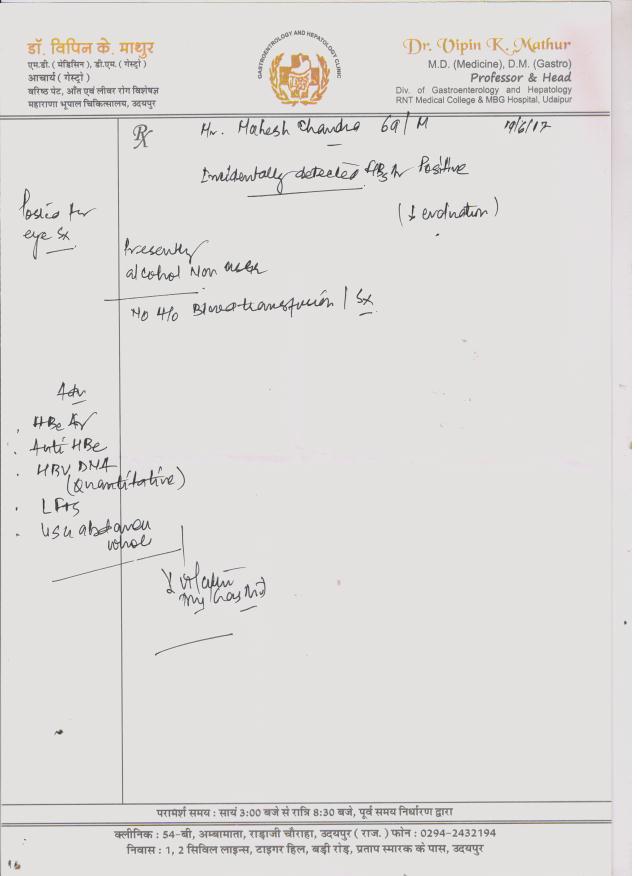 डॉ. विपिन के. माथुर
एम.डी. ( मेडिसिन ), डी.एम. ( गेस्ट्रो )
आचार्य ( गेस्ट्रो )
वरिष्ठ पेट, आँत एवं लीवर रोग विशेषज्ञ
महाराणा भूपाल चिकित्सालय, उदयपुर
GASTROENTROLOGY AND HEPATOLOGY CLINIC
Dr. Vipin K. Mathur
M.D. (Medicine), D.M. (Gastro)
Professor & Head
Div. of Gastroenterology and Hepatology
RNT Medical College & MBG Hospital, Udaipur
Rx
Mr. Mahesh Chandra 69/M
Incidentally detected HBsAg Positive
( evaluation )
Posted for
eye Sx
Presently
alcohol Non user
No H/o Blood transfusion / Sx
Adv
. HBe Ag
. Anti HBe
. HBV DNA
(Quantitative)
. LFTs
. USG abdomen
whole
परामर्श समय : सायं 3:00 बजे से रात्रि 8:30 बजे, पूर्व समय निर्धारण द्वारा
क्लीनिक : 54-बी, अम्बामाता, राड़ाजी चौराहा, उदयपुर ( राज. ) फोन : 0294-2432194
निवास : 1, 2 सिविल लाइन्स, टाइगर हिल, बड़ी रोड़, प्रताप स्मारक के पास, उदयपुर